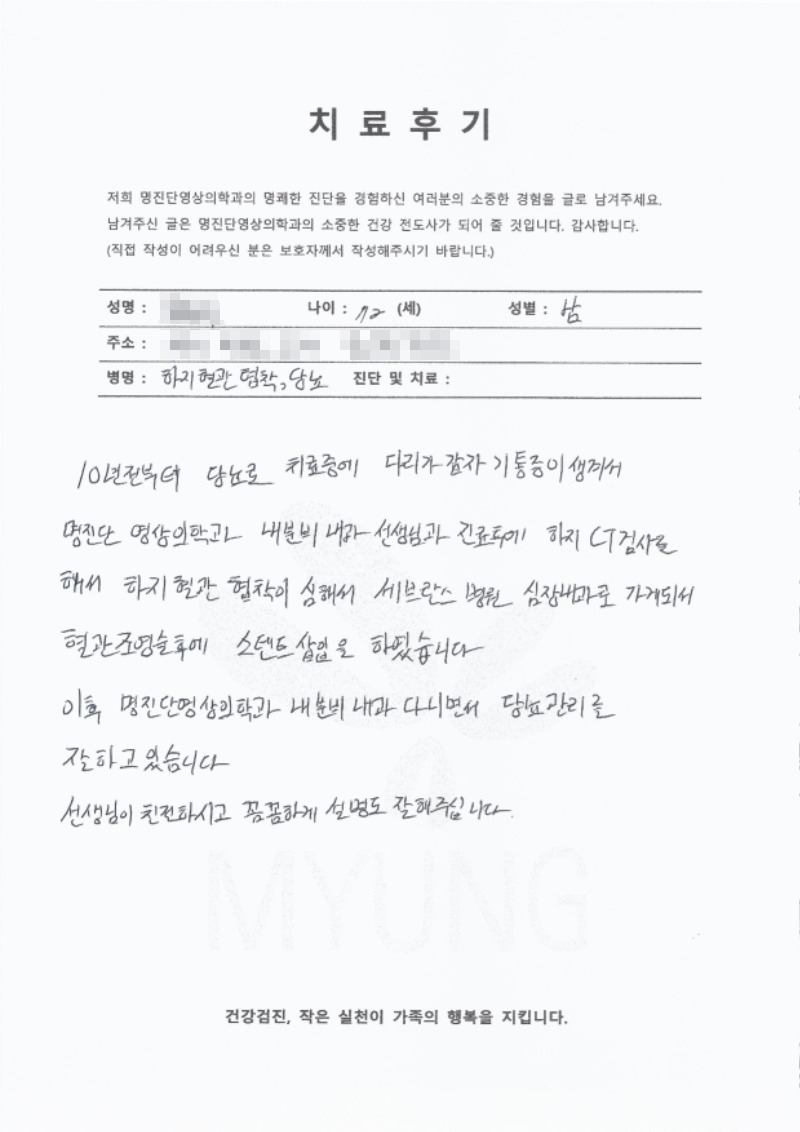 치료후기
저희 명진단영상의학과의 명쾌한 진단을 경험하신 여러분의 소중한 경험을 글로 남겨주세요.
남겨주신 글은 명진단영상의학과의 소중한 건강 전도사가 되어 줄 것입니다. 감사합니다.
(직접 작성이 어려우신 분은 보호자께서 작성해주시기 바랍니다.)
성명 : 나이 : 72 (세) 성별 : 남
주소 :
병명 : 하지혈관 협착, 당뇨 진단 및 치료 :
10년전부터 당뇨로 치료중에 다리가 갑자기 통증이 생겨서
명진단 영상의학과 내분비 내과 선생님과 진료후에 하지 CT검사를
해서 하지 혈관 협착이 심해서 세브란스 병원 심장내과로 가게되서
혈관조영술후에 스텐트 삽입을 하였습니다
이후 명진단영상의학과 내분비 내과 다니면서 당뇨관리를
잘하고 있습니다
선생님이 친절하시고 꼼꼼하게 설명도 잘해주십니다.
MYUNG
건강검진, 작은 실천이 가족의 행복을 지킵니다.